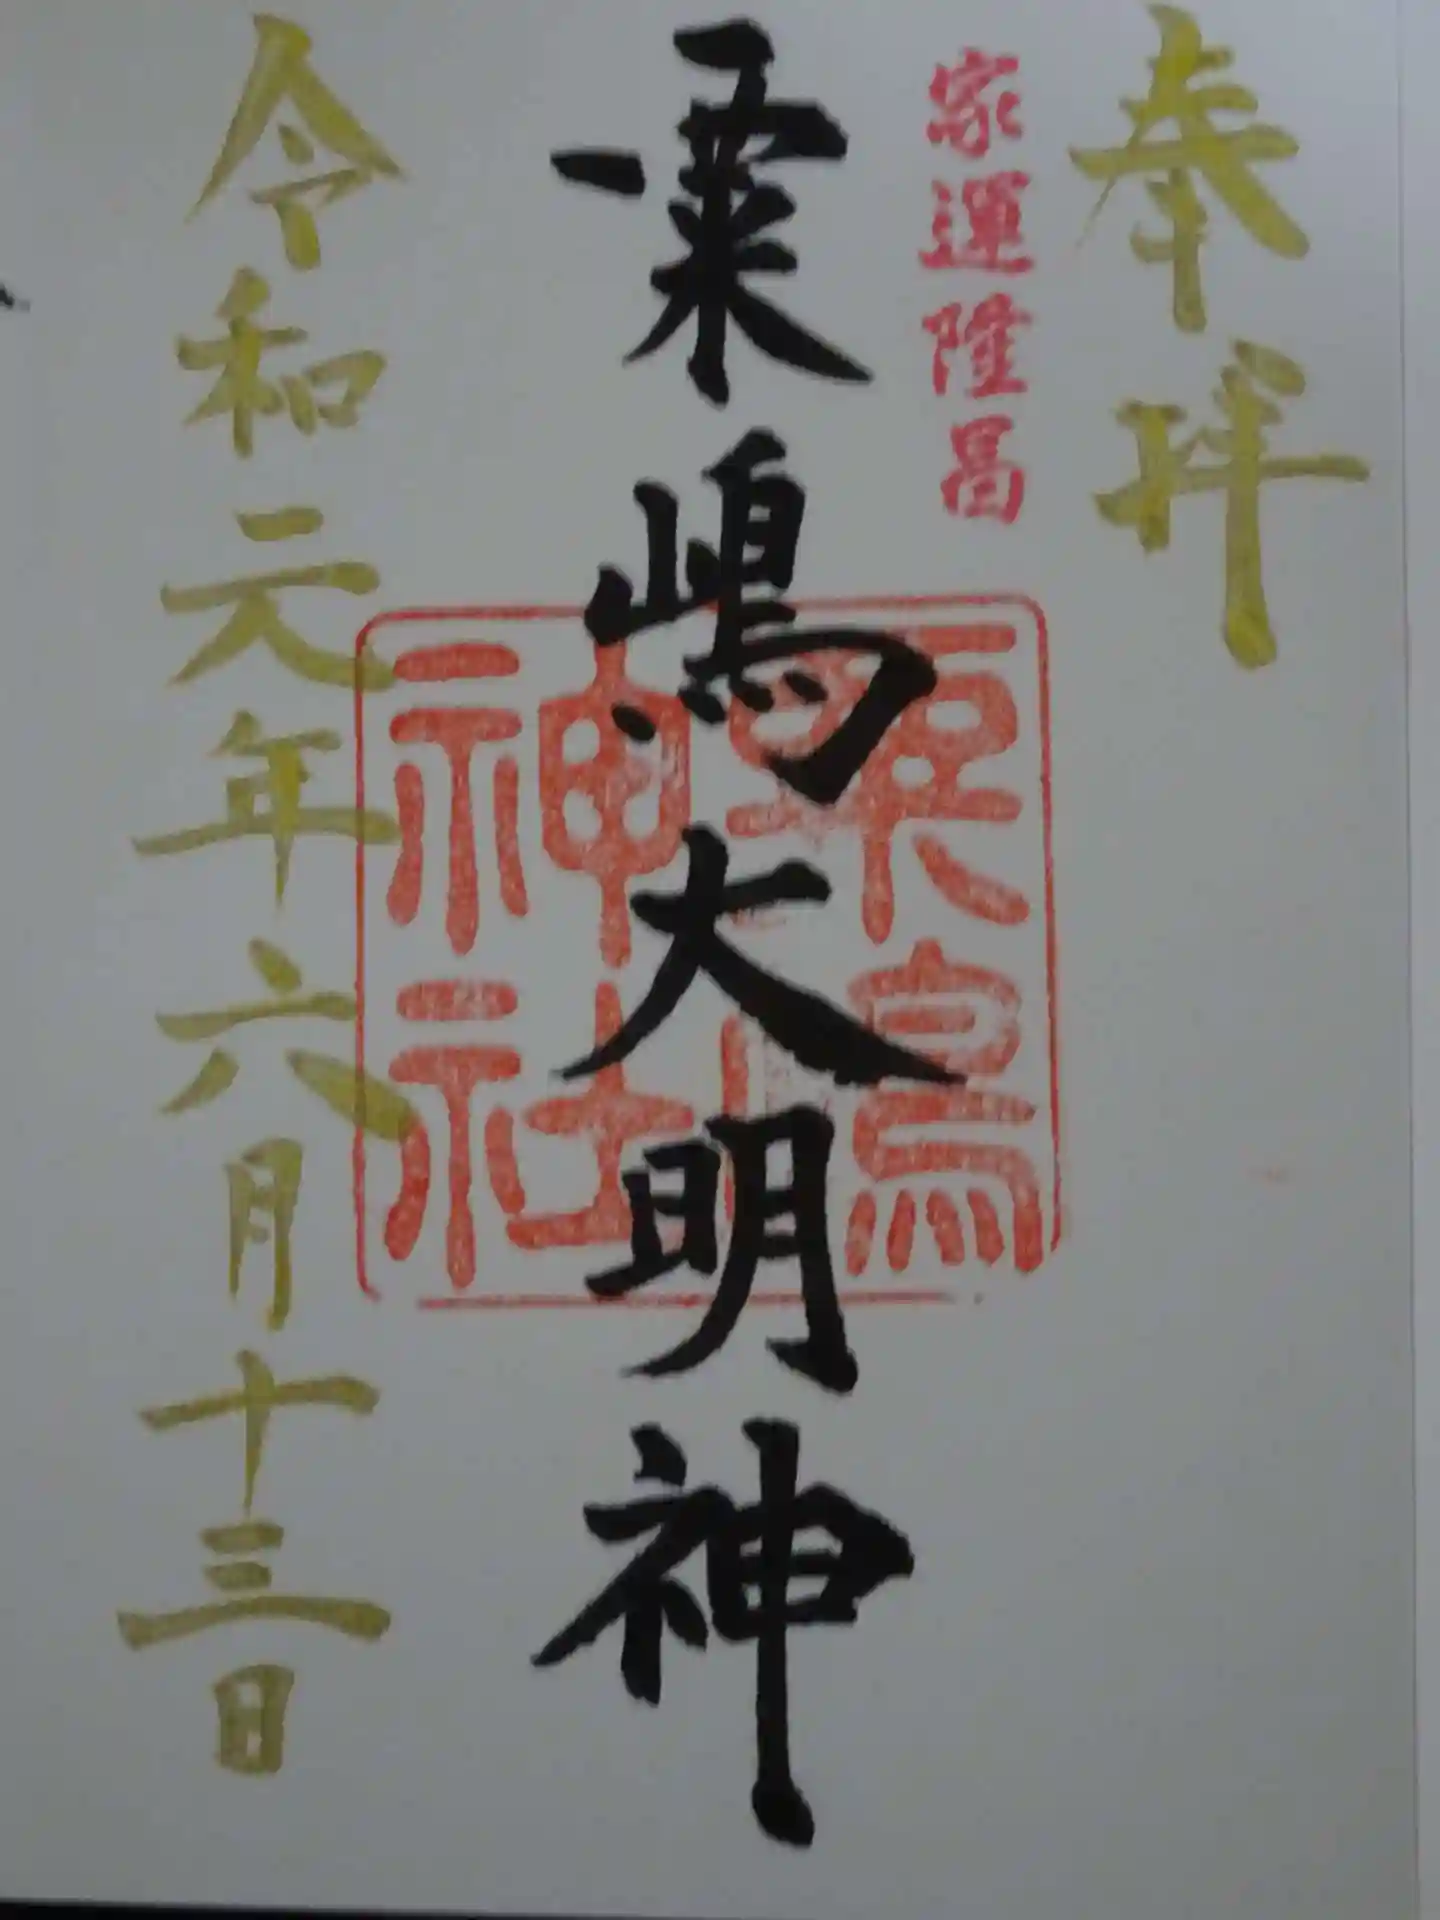 奉拝
家運隆昌
粟嶋大明神
粟嶋
神社
令和元年六月十三日